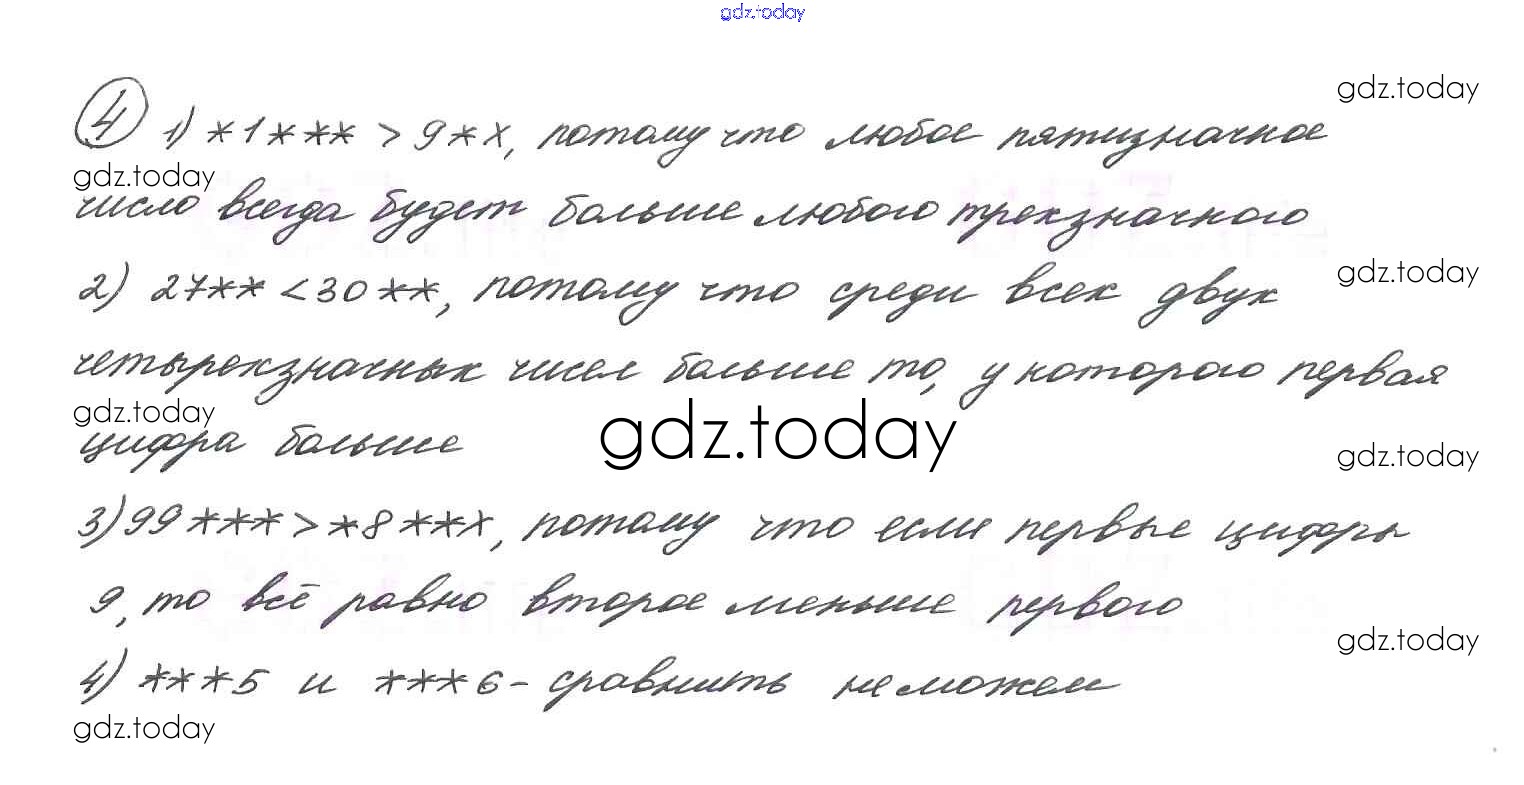 gdz.today
gdz.today
④ 1) *1*** > 9*х, потому что любое пятизначное
gdz.today
число всегда будет больше любого трехзначного
gdz.today
2) 27** < 30**, потому что среди всех двух
четырехзначных чисел больше то, у которого первая
gdz.today
цифра больше
gdz.today
gdz.today
3) 99*** > *8**х, потому что если первые цифры
9, то всё равно второе меньше первого
gdz.today
4) ***5 и ***6 - сравнить не можем
gdz.today